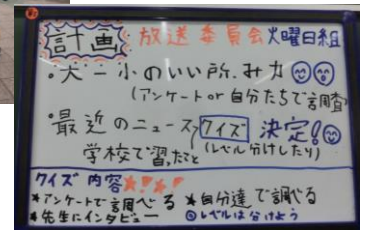 計画 放送委員会 火曜日組
・大一小のいい所.みカ
(アンケートor自分たちで調査)
・最近のニュース クイズ 決定!
学校で習ったこと (レベル分けしたり)
クイズ 内容
*アンケートで調べる *自分達で調べる
*先生にインタビュー ◎レベルは分けよう